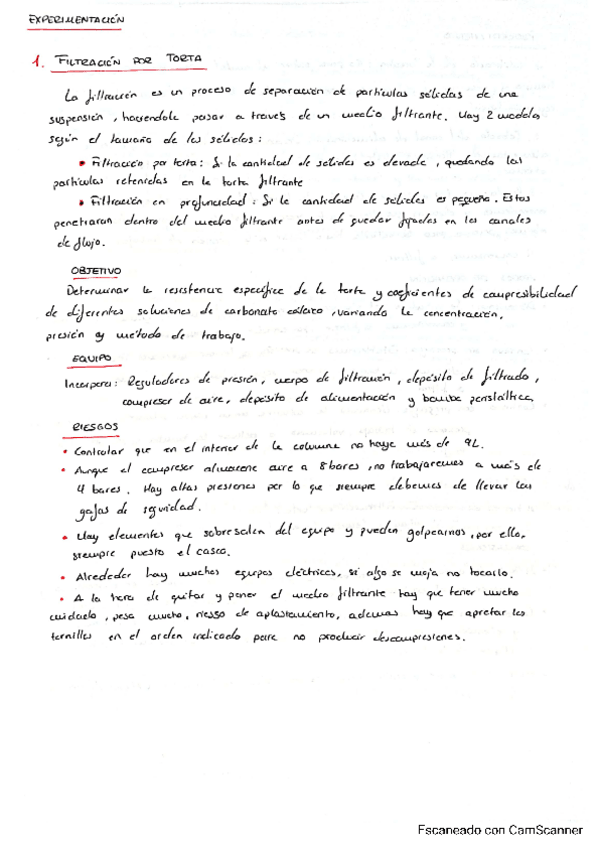 EXPERIMENTACIÓN
1. FILTRACIÓN POR TORTA
La filtración es un proceso de separación de partículas sólidas de una
suspensión, haciéndola pasar a través de un medio filtrante. Hay 2 modelos
según el tamaño de los sólidos:
• Filtración por torta: Si la cantidad de sólidos es elevada, quedando las
partículas retenidas en la torta filtrante
• Filtración en profundidad: Si la cantidad de sólidos es pequeña. Estos
penetraran dentro del medio filtrante antes de quedar fijadas en los canales
de flujo.
OBJETIVO
Determinar la resistencia específica de la torta y coeficientes de compresibilidad
de diferentes soluciones de carbonato cálcico, variando la concentración,
presión y método de trabajo.
EQUIPO
Incorpora: Reguladores de presión, cuerpo de filtración, depósito de filtrado,
compresor de aire, depósito de alimentación y bomba peristáltica.
RIESGOS
• Controlar que en el interior de la columna no haya más de 9L.
• Aunque el compresor almacene aire a 8 bares, no trabajaremos a más de
4 bares. Hay altas presiones por lo que siempre debemos de llevar las
gafas de seguridad.
• Hay elementos que sobresalen del equipo y pueden golpearnos, por ello,
siempre puesto el casco.
• Alrededor hay muchos equipos eléctricos, si algo se moja no tocarlo.
• A la hora de quitar y poner el medio filtrante hay que tener mucho
cuidado, pesa mucho, riesgo de aplastamiento, ademas hay que apretar los
tornillos en el orden indicado para no producir descompresiones.
Escaneado con CamScanner